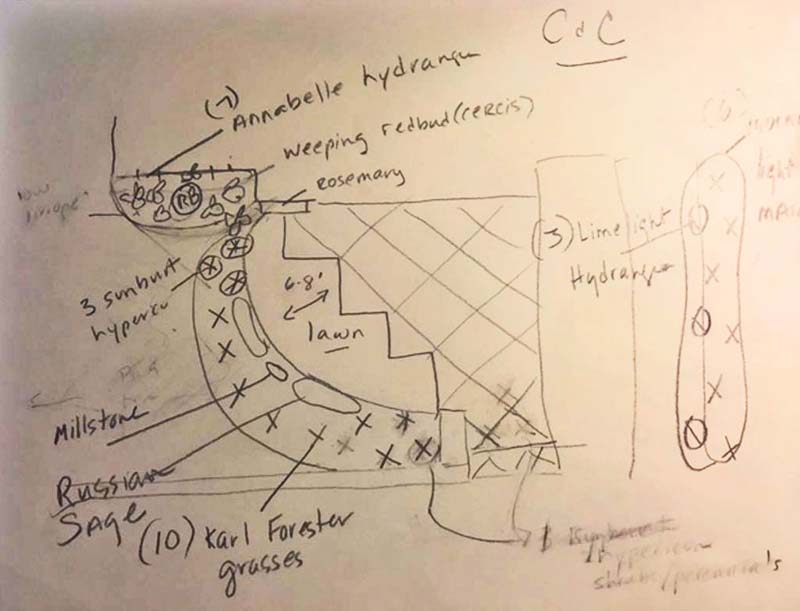 C & C
(7)
Annabelle hydrangea
weeping redbud (cercis)
rosemary
RB
3 sunburst
hypericu
6-8'
lawn
(3) Limelight
Hydrangea
light
Millstone
Russian
Sage
(10) Karl Forester
grasses
hypericum
shrubs/perennia's